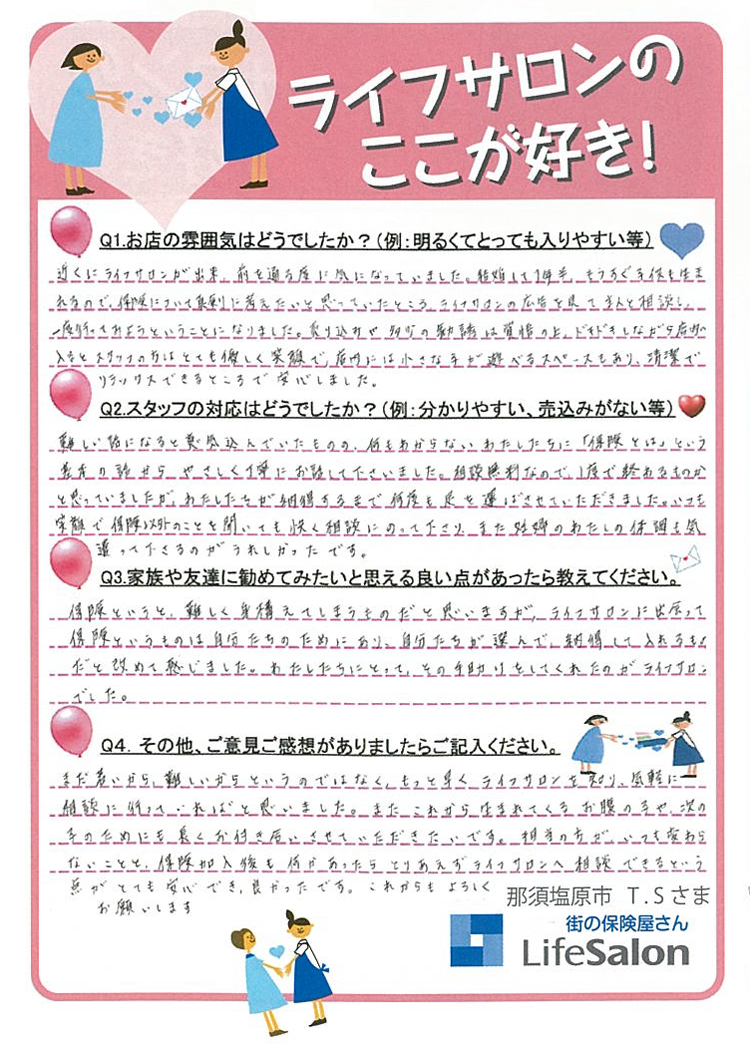 ライフサロンの
ここが好き!
Q1.お店の雰囲気はどうでしたか?(例:明るくてとっても入りやすい等)
近くにライフサロンが出来、前を通る度に気になっていました。結婚して1年半、もうすぐ子供も生ま
れるので、保険について真剣に考えたいと思っていたところ、ライフサロンの広告を見て主人と相談し、
一度行ってみようということになりました。売り込みや多少の勧誘は覚悟の上、ドキドキしながら店内へ
入るとスタッフの方はとても優しく笑顔で、店内には小さな子が遊べるスペースもあり、清潔で
リラックスできるところで安心しました。
Q2.スタッフの対応はどうでしたか?(例:分かりやすい、売込みがない等)
難しい話になると意気込んでいたものの、何もわからないわたしたちに「保険とは」という
基本の話から やさしく丁寧にお話して下さいました。相談無料なので、1度で終わるものか
と思っていましたが、わたしたちが納得するまで何度も足を運ばさせていただきました。いつも
笑顔で保険以外のことを聞いても快く相談にのって下さり、また妊婦のわたしの体調も気
遣って下さるのがうれしかったです。
Q3.家族や友達に勧めてみたいと思える良い点があったら教えてください。
保険というと、難しく身構えてしまうものだと思いますが、ライフサロンに出会って
保険というものは自分たちのためにあり、自分たちが選んで、納得して入れるもの
だと改めて感じました。わたしたちにとって、その手助けをしてくれたのがライフサロン
でした。
Q4. その他、ご意見ご感想がありましたらご記入ください。
まだ若いから、難しいからというのではなく、もっと早く ライフサロンを知り、気軽に
相談に行っていればと思いました。また これから生まれてくる お腹の子や、次の
子のためにも長くお付き合いさせていただきたいです。担当の方が、いつも変わら
ないことと、保険加入後も何かあったら とりあえずライフサロンへ相談できるという
点が とても安心でき、良かったです。これからもよろしく
お願いします
那須塩原市 T.Sさま
街の保険屋さん
LifeSalon